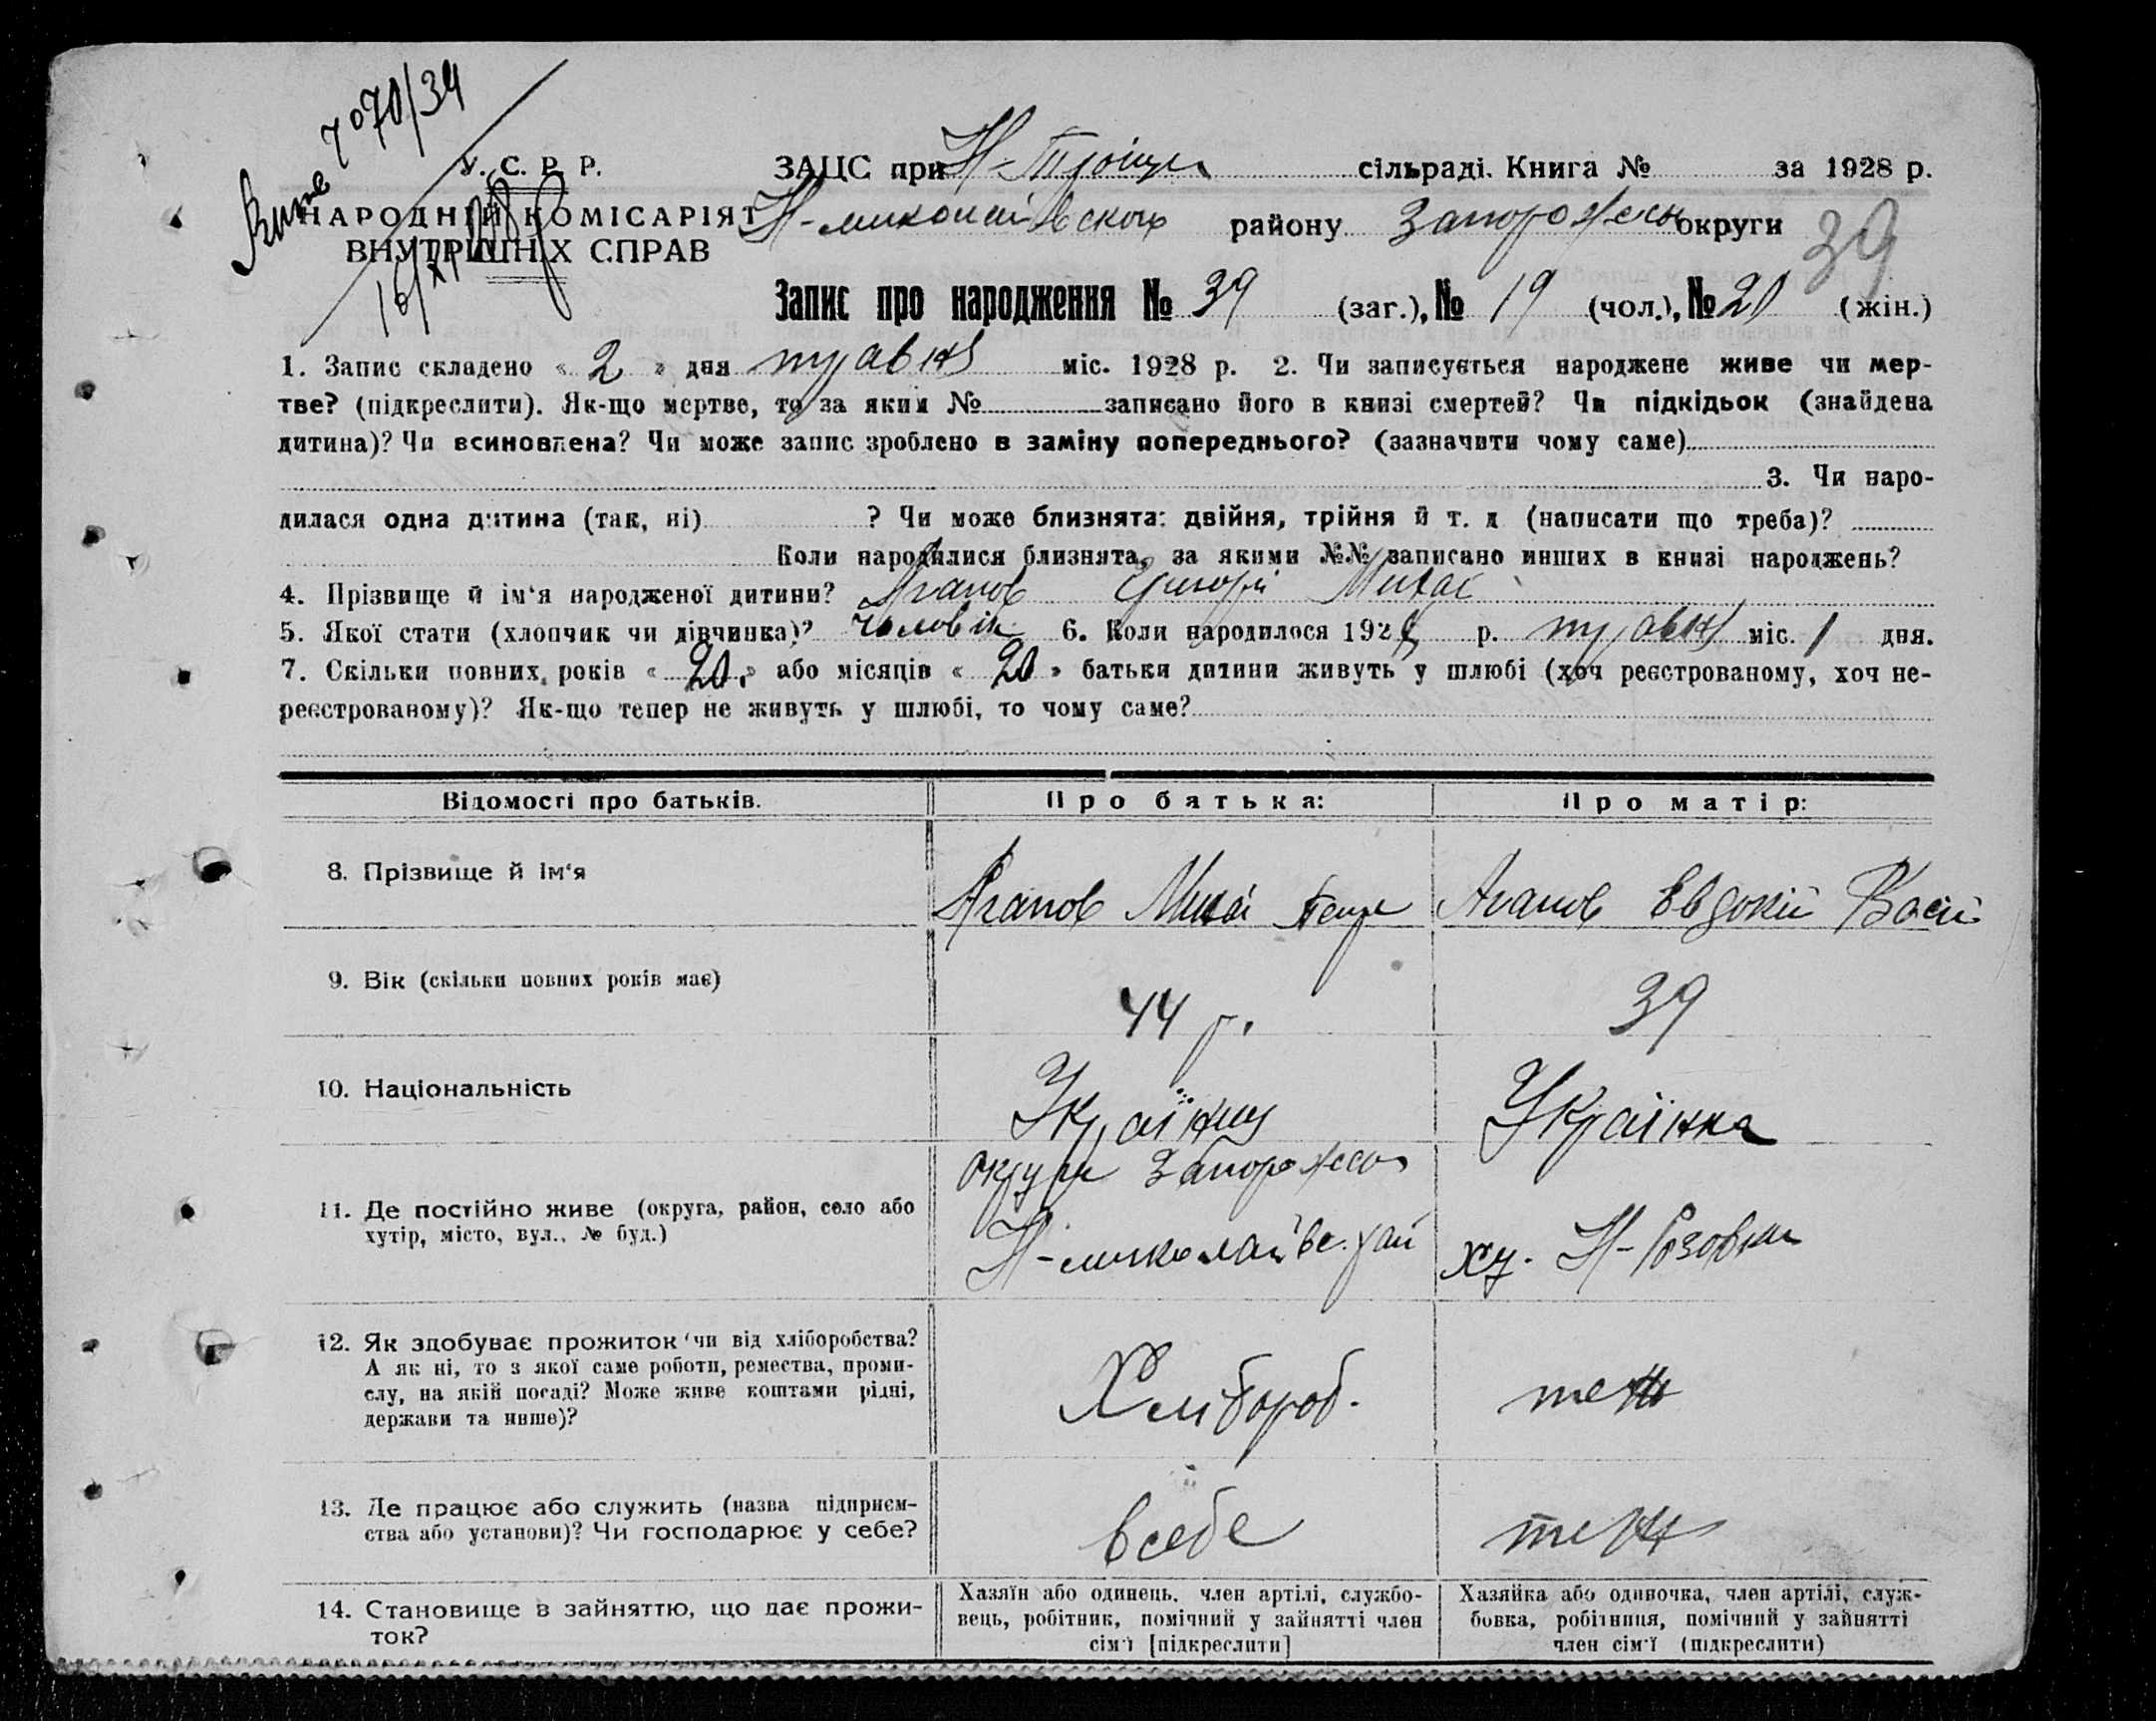 7070/34
У. С. Р. Р.
НАРОДНІЙ КОМІСАРІЯТ
ВНУТРІШНІХ СПРАВ
ЗАЦС при Н-Троіцк сільраді. Книга № за 1928 р.
Н-миколаівского району Запорожськ округи
39
Запис про народження № 39 (заг.), № 19 (чол.), № 20 (жін.)
1. Запис складено « 2 » дня травня міс. 1928 р. 2. Чи записується народжене живе чи мер-
тве? (підкреслити). Як-що мертве, то за яким № записано його в книзі смертей? Чи підкідьок (знайдена
дитина)? Чи всиновлена? Чи може запис зроблено в заміну попереднього? (зазначити чому саме)
3. Чи наро-
дилася одна дитина (так, ні) ? Чи може близнята: двійня, трійня й т. д (написати що треба)?
Коли народилися близнята, за якими №№ записано инших в книзі народжень?
4. Прізвище й ім'я народженої дитини? Агапов Григорій Михай
5. Якої стати (хлопчик чи дівчинка)? чоловік 6. Коли народилося 1928 р. травня міс. 1 дня.
7. Скільки повних років « 20 » або місяців « 20 » батьки дитини живуть у шлюбі (хоч реєстрованому, хоч не-
реєстрованому)? Як-що тепер не живуть у шлюбі, то чому саме?
Відомості про батьків. Про батька: Про матір:
8. Прізвище й ім'я Агапов Михай Агапов Евдокії Васи
9. Вік (скільки повних років має) 44 р. 39
10. Національність Українц Українка
11. Де постійно живе (округа, район, село або
хутір, місто, вул., № буд.)
округи Запорожсько
Н-миколаївс. рай ху. Н-Розовки
12. Як здобуває прожиток чи від хліборобства?
А як ні, то з якої саме роботи, ремества, проми-
слу, на якій посаді? Може живе коштами рідні,
держави та инше)?
Хлібороб. теж
13. Де працює або служить (назва підприєм-
ства або установи)? Чи господарює у себе?
в себе теж
14. Становище в зайняттю, що дає прожи-
ток?
Хазяїн або одинець, член артілі, службо-
вець, робітник, помічний у зайнятті член
сім'ї [підкреслити]
Хазяйка або одиночка, член артілі, служ-
бовка, робітниця, помічний у зайнятті
член сім'ї (підкреслити)